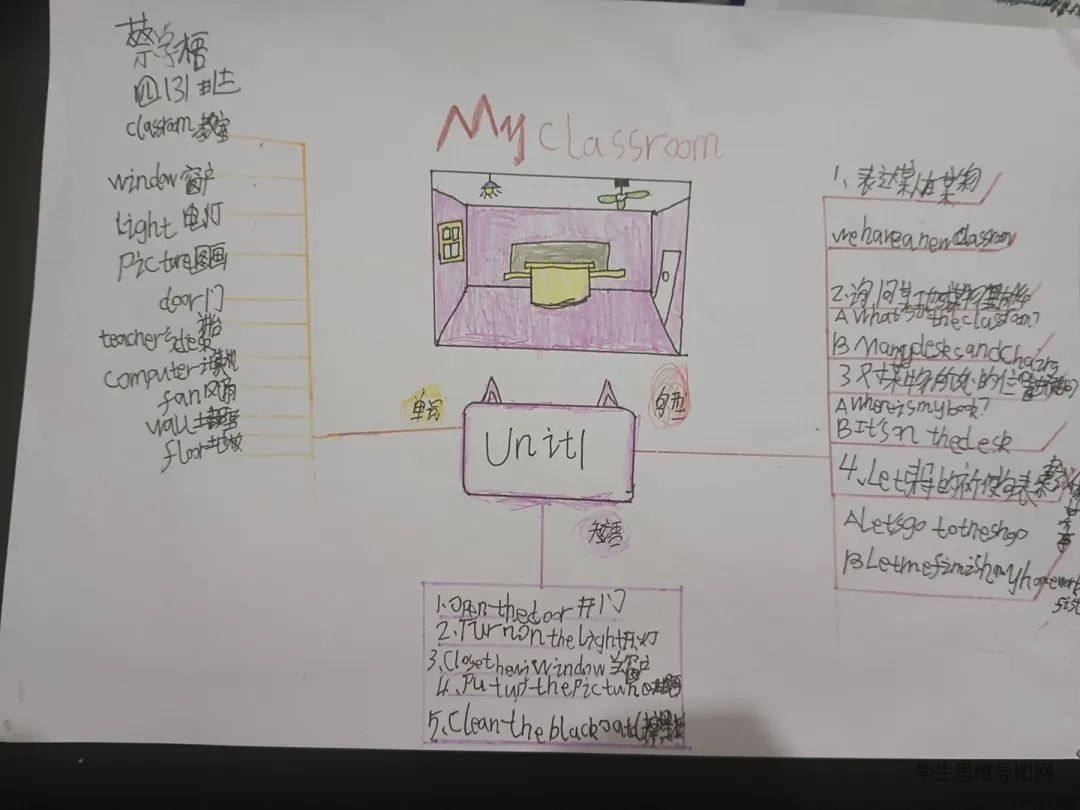 蔡学梧
四131班
classrom 教室
window 窗户
light 电灯
picture 图画
door 门
teacher's desk 讲台
computer 计算机
fan 风扇
wall 墙壁
floor 地板
My classroom
单词
Unit1
句型
短语
1、表达某人有某物
we have a new classrom
2.询问某
A What's in the classrom?
B Many desks and chairs
3 对某物所处的位置
A where is my book?
B It's on the desk
4、Let 的祈使句表
A Let's go to the shop
B Let me finish my homework
first
1.Open the door 开门
2.Turn on the light 开灯
3.Close the window 关窗户
4.Put up the picture
5.Clean the blackboard
学生思维导图网